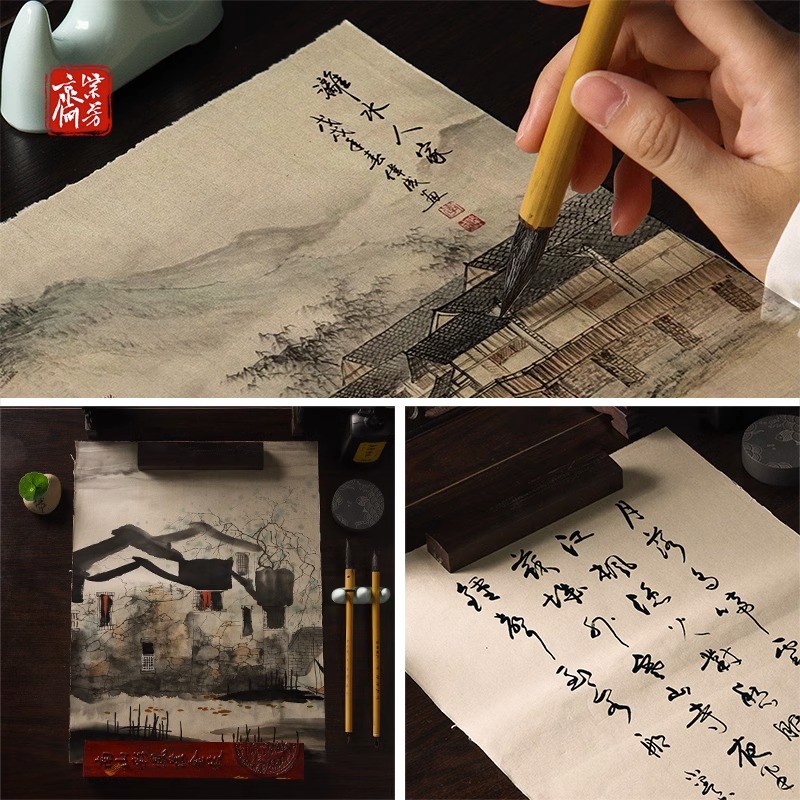 紫芳
灕水人家
戊戌年春偉成畫
月落烏啼霜
江楓漁火對愁眠
蘇城外寒山寺夜半
鐘聲到客船